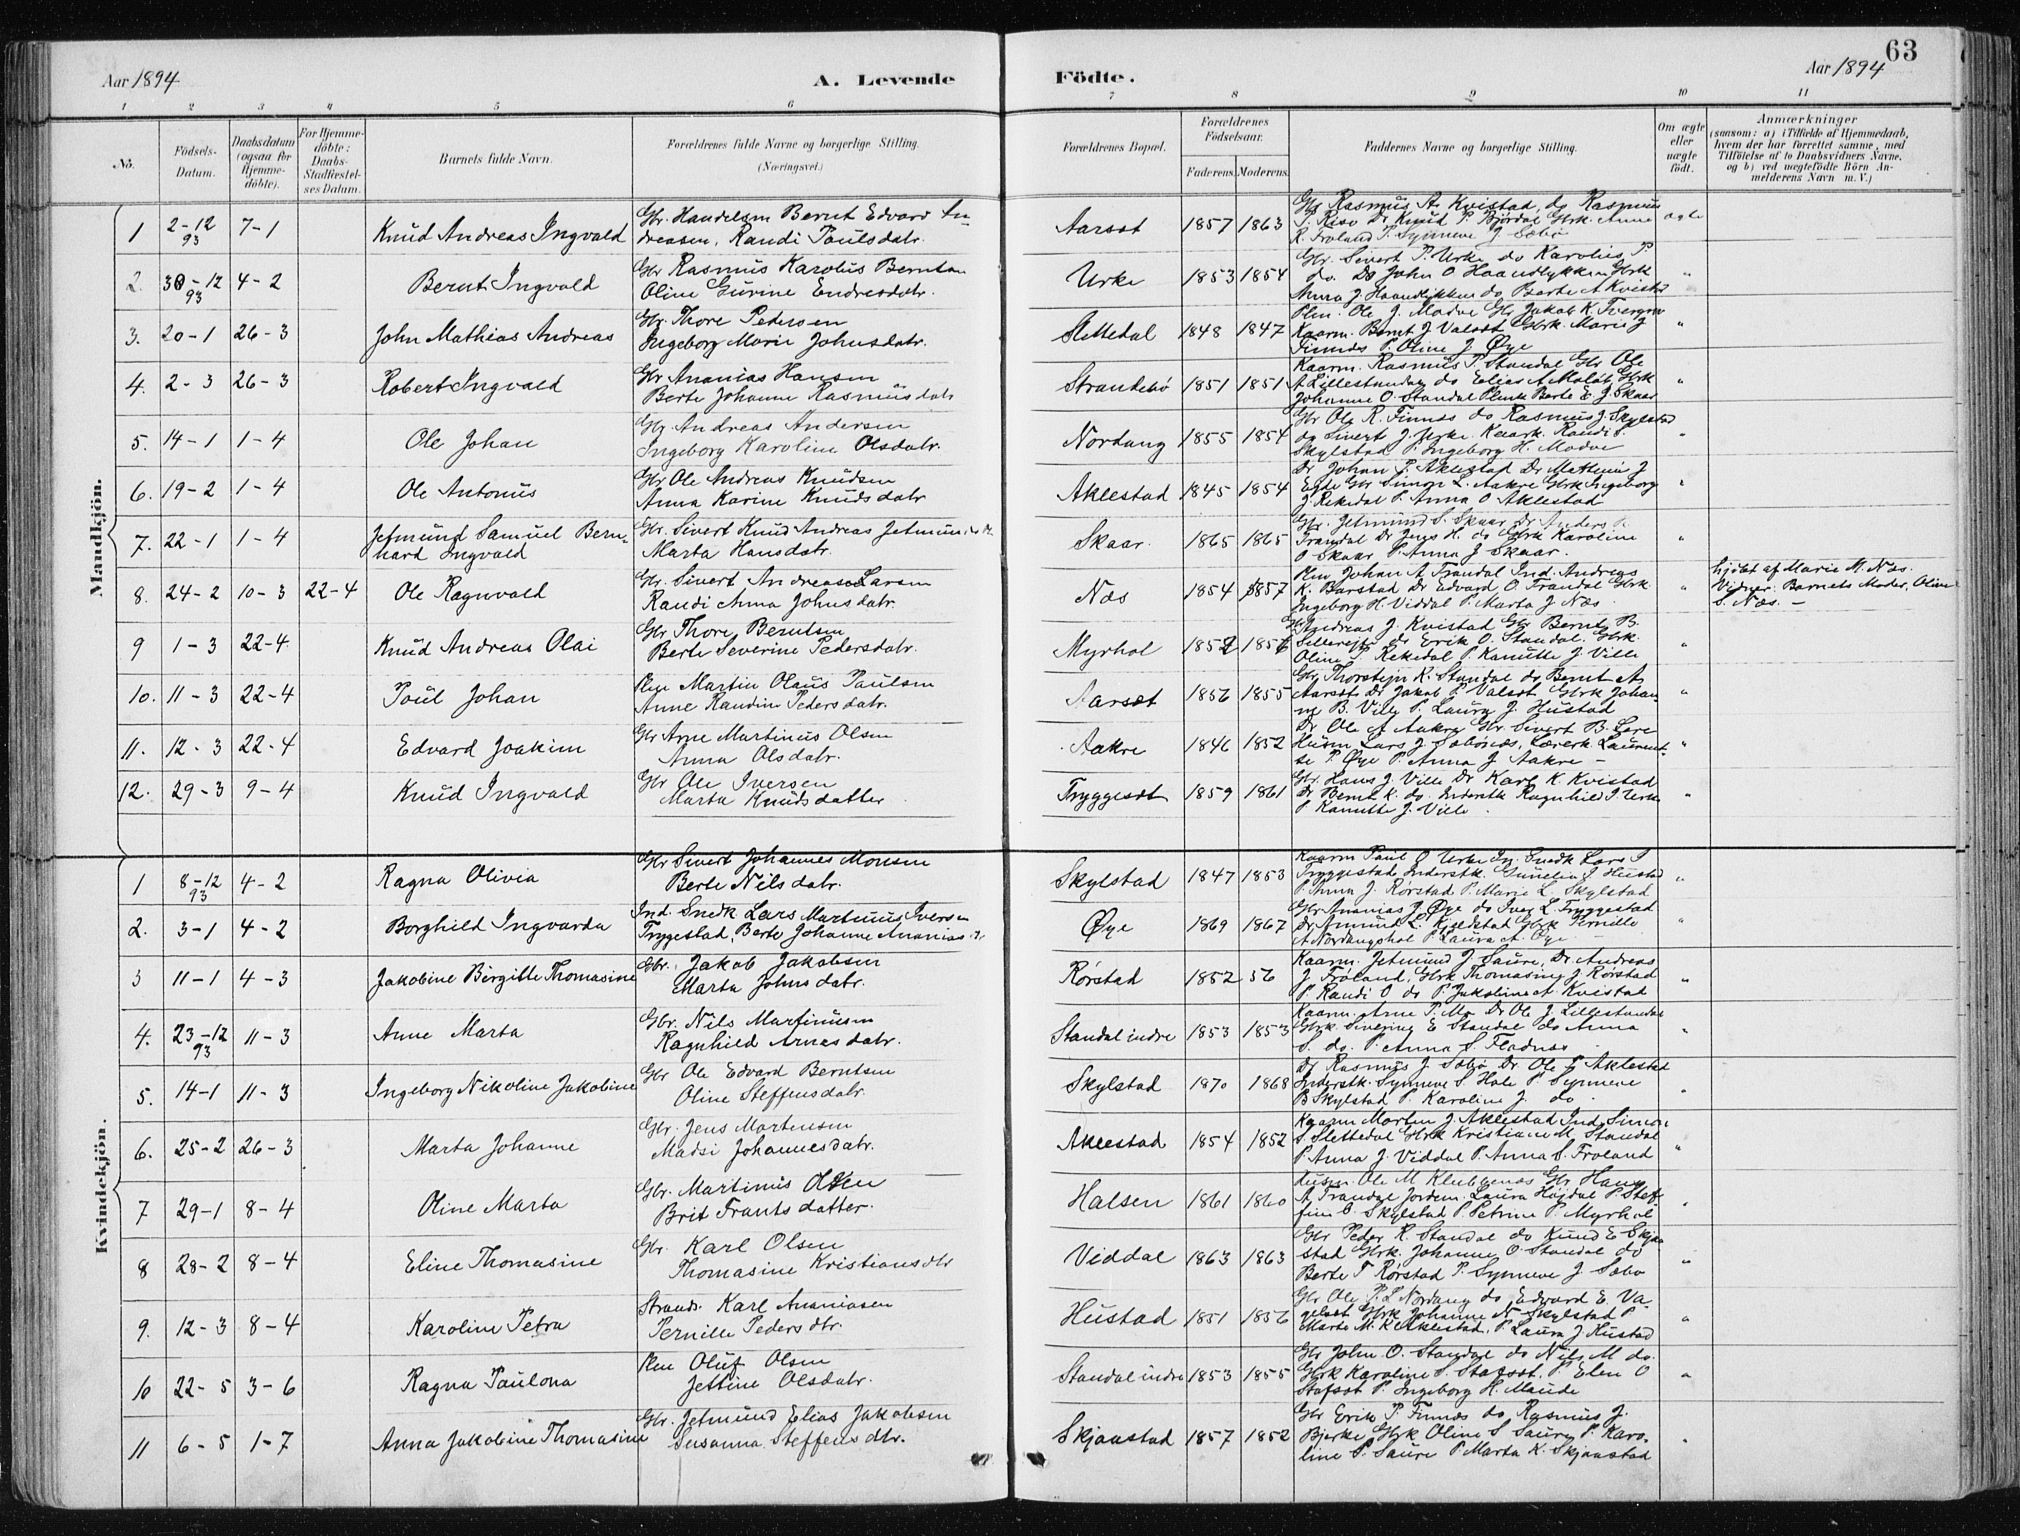 63
Aar 1894
A. Levende
Födte.
Aar 1894
1 2 3 4 5 6 7 8 9 10 11
Nö.
Födsels-
Datum.
Daabsdatum
(ogsaa for
Hjemme-
döbte).
For Hjemme-
döbte:
Daabs-
Stadfæstel-
ses Datum.
Barnets fulde Navn.
Forældrenes fulde Navne og borgerlige Stilling.
(Næringsvei.)
Forældrenes Bopæl.
Forældrenes
Födselsaar.
Faderens. Moderens.
Faddernes Navne og borgerlige Stilling.
Om ægte
eller
uægte
födt.
Anmærkninger
(saasom: a) i Tilfælde af Hjemmedaab,
hvem der har forrettet samme, med
Tilföielse af to Daabsvidners Navne,
og b) ved uægtefödte Börn An-
melderens Navn m. V.)
Mandkjön.
1 2-12 93 7-1 Knud Andreas Ingvald
Gbr. Handelsm Bernt Edvard An
dreasen, Randi Poulsdatr.
Aarsæt 1857 1863
Gbr Rasmus A. Kvistad do Rasmus
P. Riso Dr Knud P. Bjørdal Gbrk. Anne
R. Froland P. Synneve J. Sæbø
ægte
2. 30-12 93 4-2 Bernt Ingvald
Gbr Rasmus Karolus Berntsen
Oline Gurine Endresdatr.
Urke 1853 1854
Gbr. Sivert P. Urke do Karolus P.
do. Dr John O Haandlykken Gbrk
Anna J. Haandlykken do Berte A Kvistad
"
3. 20-1 26-3 John Mathias Andreas
Gbr. Thore Pedersen
Ingeborg Marie Johnsdatr.
Slettedal 1848 1847
Plm. Ole J. Madve Gbr Jakob K.
Kaarm. Bernt J Valset Gbrk. Marie J
Finnes P. Oline J. Øye
"
4. 2-3 26-3 Robert Ingvald
Gbr Ananias Hansen
Berte Johanne Rasmusdatr
Strandebø 1851 1851
Kaarm. Rasmus P. Standal Gbr Ole
A Lillestandal do Elias A Gbrk
Johanne O. Standal Plmk Berte E. J. Skaar
"
5. 14-1 1-4 Ole Johan
Gbr Andreas Andersen
Ingeborg Karoline Olsdatr.
Nordang 1855 1854
Gbr Ole R. Finnæs do Rasmus J. Skylstad
do Sivert J. Urke. Kaark. Randi S.
Skylstad P. Ingeborg H. Madve
"
6. 19-2 1-4 Ole Antonus
Gbr Ole Andreas Knudsen
Anna Karine Knudsdatr
Aklestad 1845 1854
Dr Johan P. Aklestad Dr J
Gbr Simon L. Aakre Gbrk Ingeborg
J. Rekedal P. Anna O Aklestad
"
7. 22-1 1-4 Jetmund Samuel Bern-
hard Ingvald
Gbr. Sivert Knud Andreas
Marta Hansdatr.
Skaar. 1865 1865
Gbr. Jetmund S. Skaar Dr Anders
Trandal Dr Jens H. do Gbrk Karoline
O Skaar P. Anna J Skaar.
"
8. 24-2 10-3 22-4 Ole Ragnvald
Gbr. Sivert Andreas Larsen
Randi Anna Johnsdatr.
Næs 1854 1857
Plm Johan A Trandal Ind. Andreas
K. Barstad Dr Edvard O. Trandal Gbrk
Ingeborg H. Viddal P. Marta J. Næs
"
hjdøbt af Marie M. Næs.
Vidner: Barnets Moder, Oline
S. Næs. -
9 1-3 22-4. Knud Andreas Olai
Gbr Thore Berntsen
Berte Severine Pedersdatr.
Myrhol
Andreas J. Kvistad Gbr Bernt B.
do Erik O. Standal. Gbrk.
Oline P. Rekedal P. Kanutte J. Ville
"
10. 11-3 22-4 Poul Johan
Plm Martin Olaus Paulsen
Anne Randine Pedersdatr.
Aarsæt 1856 1855
Gbr Thorstejn K. Standal do Bernt A
Aarsæt Dr Jakob P. Valset Gbrk Johan-
ne B. Ville P. Laura J. Hustad
"
11. 12-3 22-4 Edvard Joakim
Gbr Arne Martinus Olsen
Anna Olsdatr.
Aakre 1846 1852
Dr Ole A Aakre Gbr Sivert B.
Husm Lars J. Sæbønæs, Lærerk. Laurent-
se P. Øye P. Anna J. Aakre -
"
12. 29-3 9-4 Knud Ingvald
Gbr Ole Iversen
Marta Knudsdatter
Tryggesæt 1859 1861
Gbr. Hans J. Ville Dr Karl K. Kvistad
Dr Bernt K. do. Inderstk Ragnhild I. Urke
P Kanutte J. Ville.
"
Kvindekjön.
1 8-12 93 4-2 Ragna Olivia
Gbr Sivert Johannes Monsen
Berte Nilsdatr.
Skylstad 1847 1853
Kaarm Paul O Urke In. Snedk Lars I
Tryggestad Inderstk. Gunelia J. Hustad
P. Anna J. Rørstad P. Marie L. Skylstad
"
2. 3-1 4-2 Borghild Ingvarda
Ind. Snedk Lars Martinus Iversen
Tryggestad, Berte Johanne Ananias
Øye 1869 1867
Gbr Ananias J. Øye do Iver L. Tryggestad
Dr Amund L. Kjeldstad Gbrk Pernille
A Nordangshol P Laura A. Øye
"
3 11-1 4-3 Jakobine Birgitte Thomasine
Gbr. Jakob Jakobsen
Marta Johnsdatr.
Rørstad 1852 56
Kaarm. Jetmund J Saure, Dr Andreas
J. Frøland, Gbrk Thomasine J. Rørstad
P. Randi O do P. Jakobine A. Kvistad
"
4. 23-12 93 11-3 Anne Marta
Gbr. Nils Martinusen
Ragnhild Arnesdatr.
Standal indre 1853 1853
Kaarm. Arne P. Mo Dr Ole J. Lillestandal
Gbrk Sivering E Standal do Anna
S. do. P. Anna S. Fladnæs
"
5. 14-1 11-3 Ingeborg Nikoline Jakobine
Gbr Ole Edvard Berntsen
Oline Steffensdatr.
Skylstad 1870 1868
Dr Rasmus J Sæbø Dr Ole P. Aklestad
Inderstk. Synneve S Hole P Synneve
B Skylstad P. Karoline J. do
"
6. 25-2 26-3 Marta Johanne
Gbr. Jens Martensen
Madsi Johannesdatr.
Aklestad 1854 1852
Kaarm Morten J. Aklestad Ind. Simon
S. Slettedal Gbrk Kristiane M. Standal
P. Anna J. Viddal P. Anna S. Froland
"
7 29-1 8-4 Oline Marta
Gbr. Martinus Olsen
Brit Frantsdatter.
Halsen 1861 1860
Husm. Ole M Klubbenæs Gbr Hans
A Trandal Jordem. Laura Højdal P. Stef-
fine O. Skylstad P. Petrine P. Myrhol
"
8 28-2 8-4 Eline Thomasine
Gbr. Karl Olsen
Thomasine Kristiansdtr
Viddal 1863 1863
Gbr Peder R. Standal do Knud E Skjaa
stad Gbrk, Johanne O. Standal do
Berte T Rørstad P. Synneve J. Sæbø
"
9. 12-3 8-4 Karoline Petra
Strands. Karl Ananiasen
Pernille Pedersdtr.
Hustad 1851 1856
Gbr Ole P. L Nordang do Edvard E. Va-
Gbrk Johanne N Skylstad P
Marte M. K Aklestad, P. Laura J. Hustad
"
10 22-5 3-6 Ragna Paulona
Plm Oluf Olsen
Jettine Olsdatr.
Standal indre 1853 1855
Gbr John O. Standal do Nils M do.
Gbrk Karoline S. Stafset. P. Elen O
Stafset P. Ingeborg H. Maude
"
11 6-5 1-7 Anna Jakobine Thomasine
Gbr. Jetmund Elias Jakobsen
Susanna Steffensdtr.
Skjaastad 1857 1852
Gbr Erik P. Finnæs do Rasmus J.
Bjerke Gbrk Oline S Saure P. Karo-
line P. Saure P. Marta K. Skjaastad
"